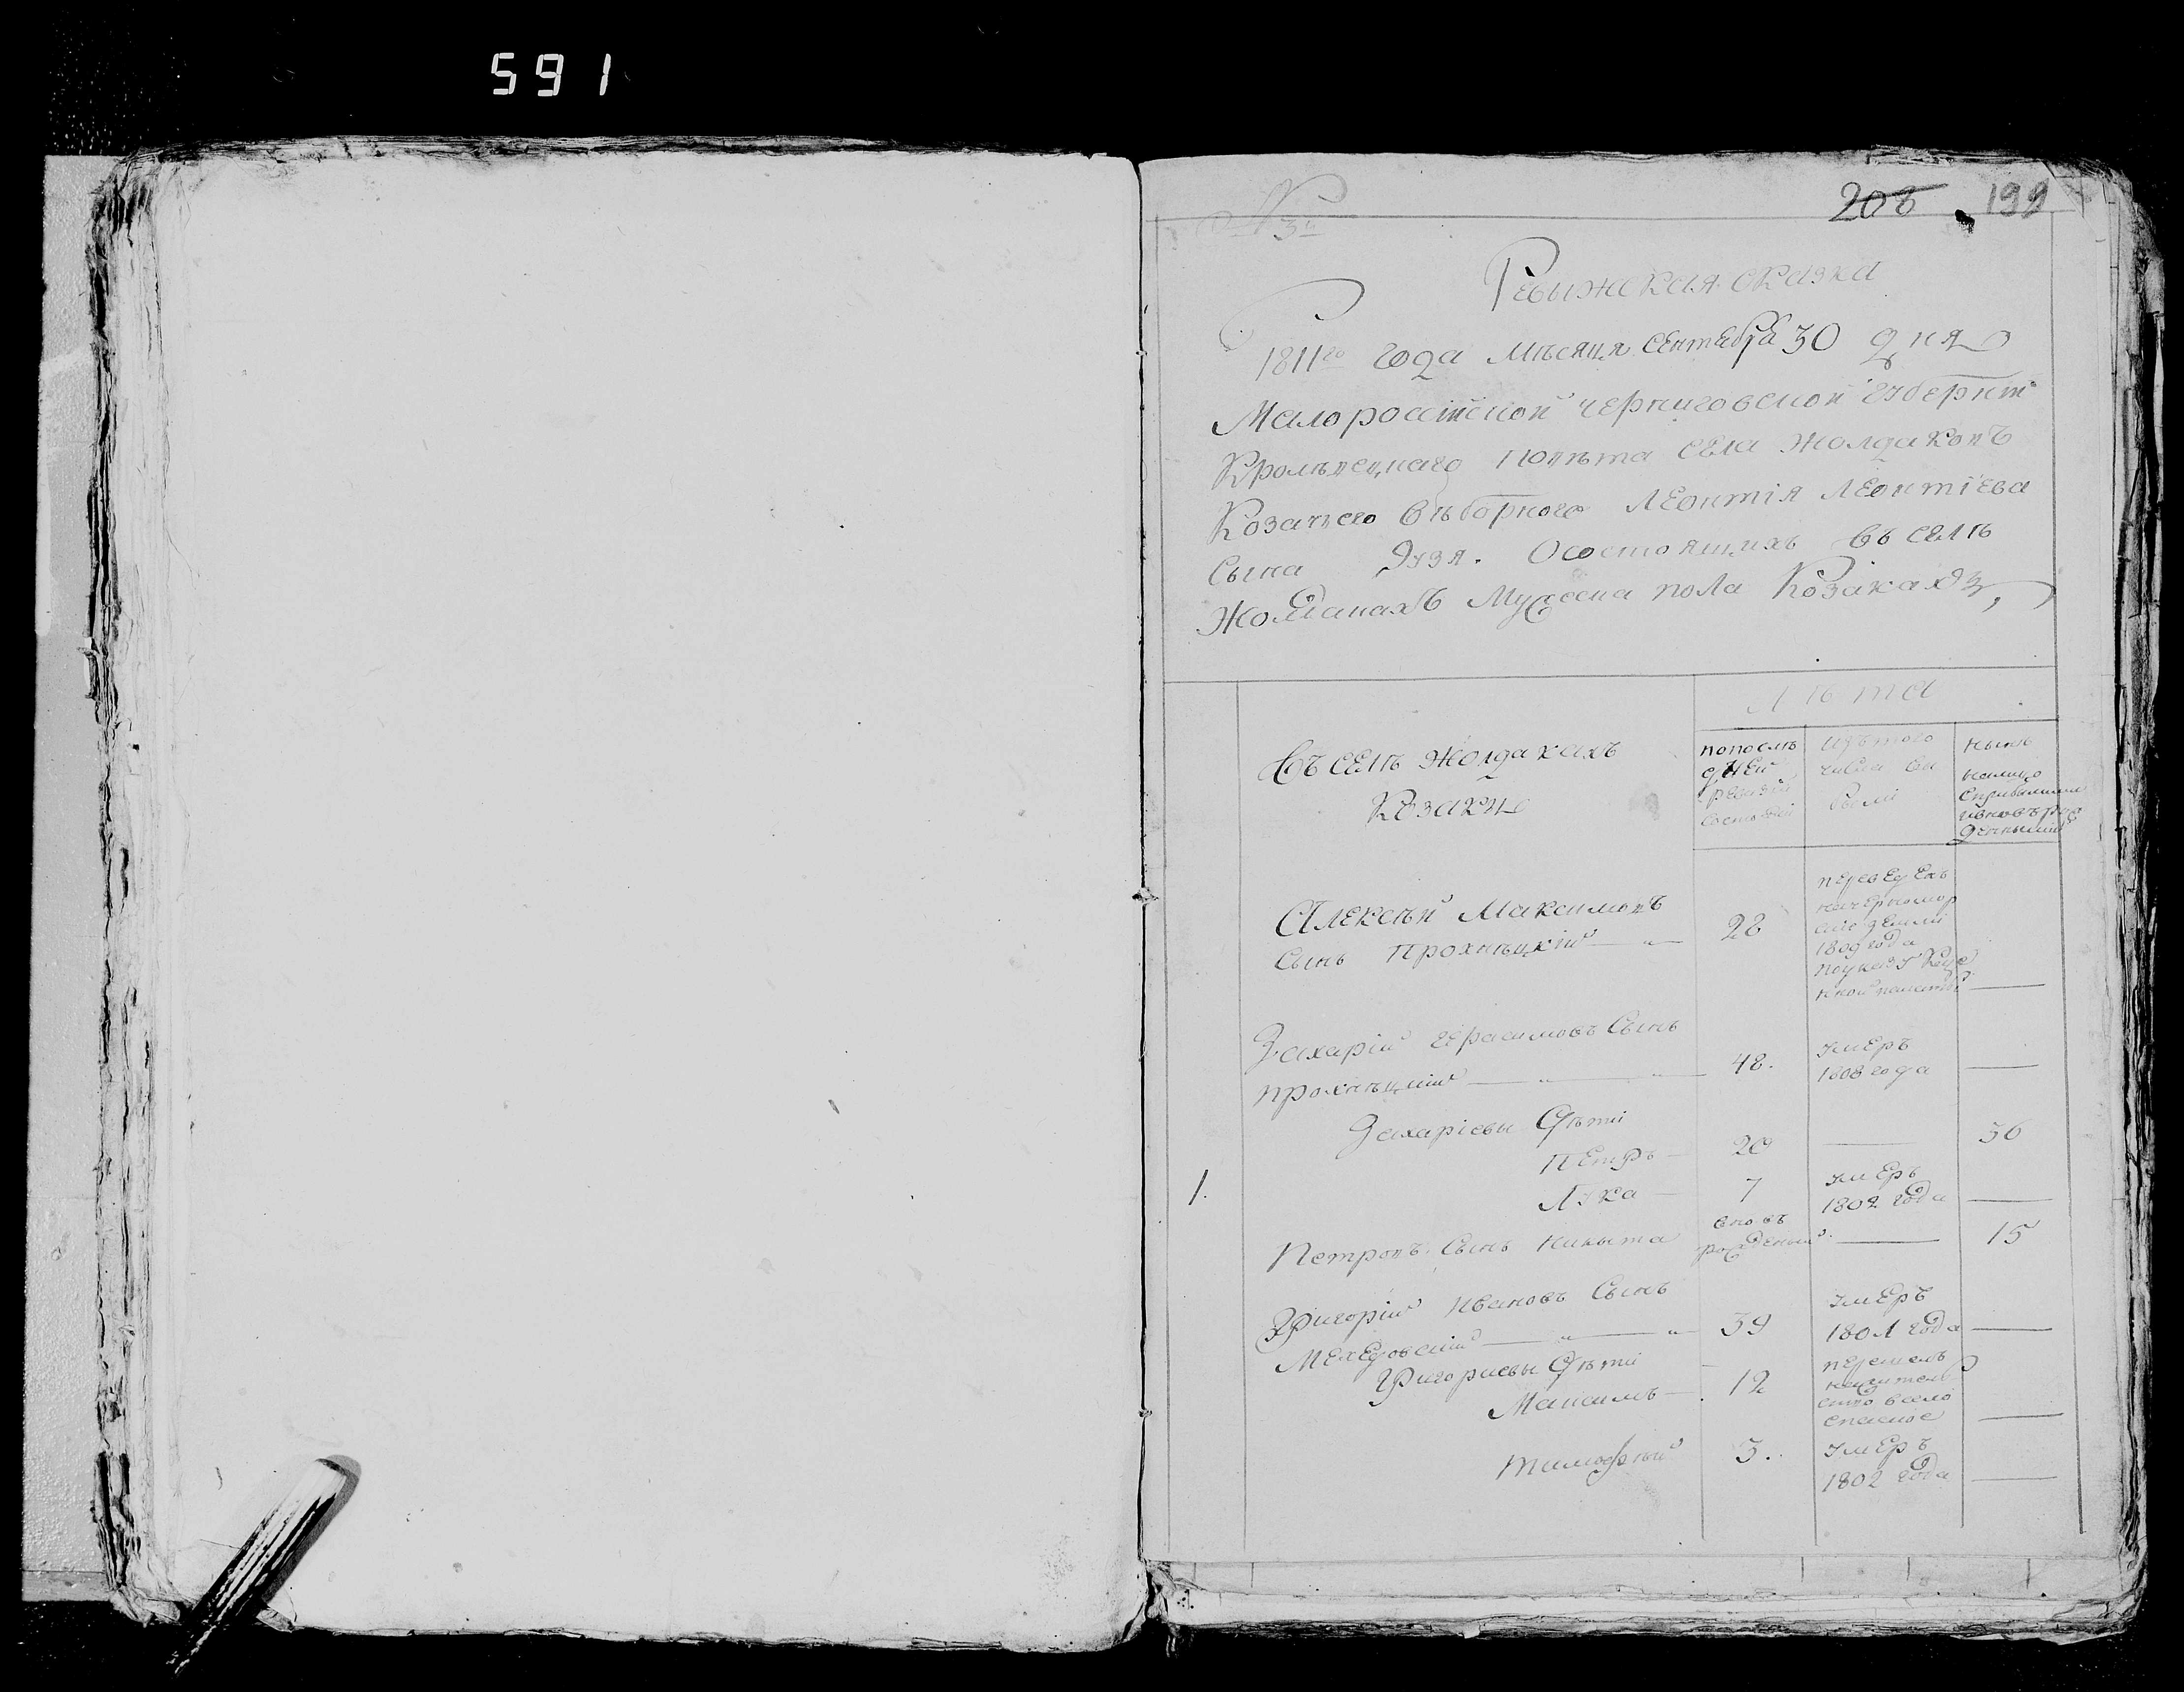 591
208 199
№ 3й
Ревыжская сказка
1811го года мѣсяця сентабра 30 дня
Малоросийской черниговской губернии
Кролѣвецкаго повѣта села Жолдаковъ
Козачего выборного Леонтія Леонтіева
сына Дузя. О состоящихъ въ селѣ
Жолдакахъ Мужеска пола Козакахъ,
Лѣта
Въ селѣ Жолдакахъ
Козаки
по послѣ
дней
ревизіи
состояли
изъ того
числа вы
были
нынѣ
налицо
Алексѣй Максимовъ
сынъ Прохнѣцкій 28
переведенъ
на черномор
скіе земли
1809 года
по указу казе
нной палаты —
Захарій Герасимовъ Сынъ
Прохнѣцкій 48.
умеръ
1808 года —
Захаріевы Дѣти
Петръ 20 — 36
1.
Лука 7
умеръ
1802 года —
Петровъ Сынъ Никыта
вновъ
рожденный — 15
Григорій Ивановъ Сынъ
Мехедовскій 39
умеръ
1801 года —
Григориевы Дѣти
Максимъ 12
перешелъ
на жителъ
ство в село
спаское —
Тимофѣй 3.
умеръ
1802 года —